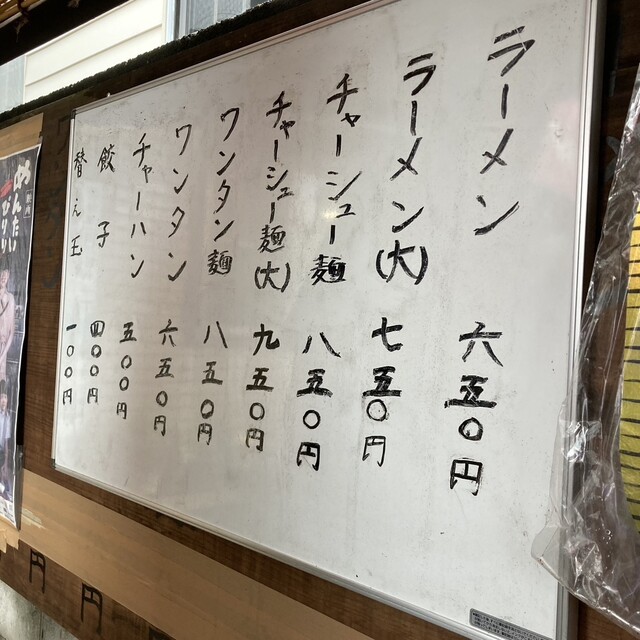 ラーメン 六五〇円
ラーメン(大) 七五〇円
チャーシュー麺 八五〇円
チャーシュー麺(大) 九五〇円
ワンタン麺 八五〇円
ワンタン 六五〇円
チャーハン 五〇〇円
餃子 四〇〇円
替え玉 一〇〇円
円
円